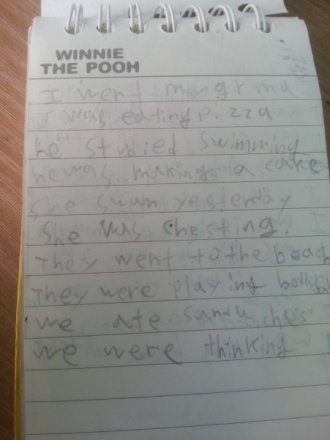 WINNIE
THE POOH
I went
I was eating pizza
he studied swimming
he was making a cake
she swum yesterday
She was
They went to the beach
They were playing
we ate
we were thinking